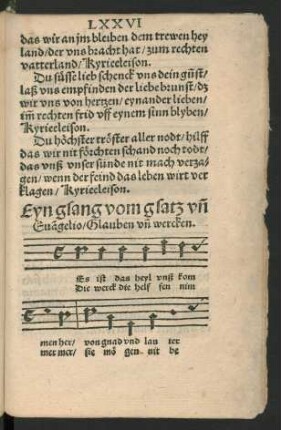 LXXVI
das wir an jm bleiben dem trewen hey
land/der vns bracht hat/zum rechten
vatterland/Kyrieeleison.
Du süsse lieb schenck vns dein gūst/
laß vns empfinden der liebe brunst/dz
wir vns von hertzen/eynander lieben/
im̄ rechten frid vff eynem sinn blyben/
Kyrieeleison.
Du höchster tröster aller nodt/hilff
das wir nit förchten schand noch todt/
das vnß vnser sünde nit mach verza-
gen/wenn der feind das leben wirt ver
klagen/Kyrieeleison.
Eyn gsang vom gsatz vn̄
Euāgelio/Glauben vn̄ wercken.
Es ist das heyl vnß kom
Die werck die helf fen nim
men her/ von gnad vnd lau ter
mer mer/ sie mö gen nit be